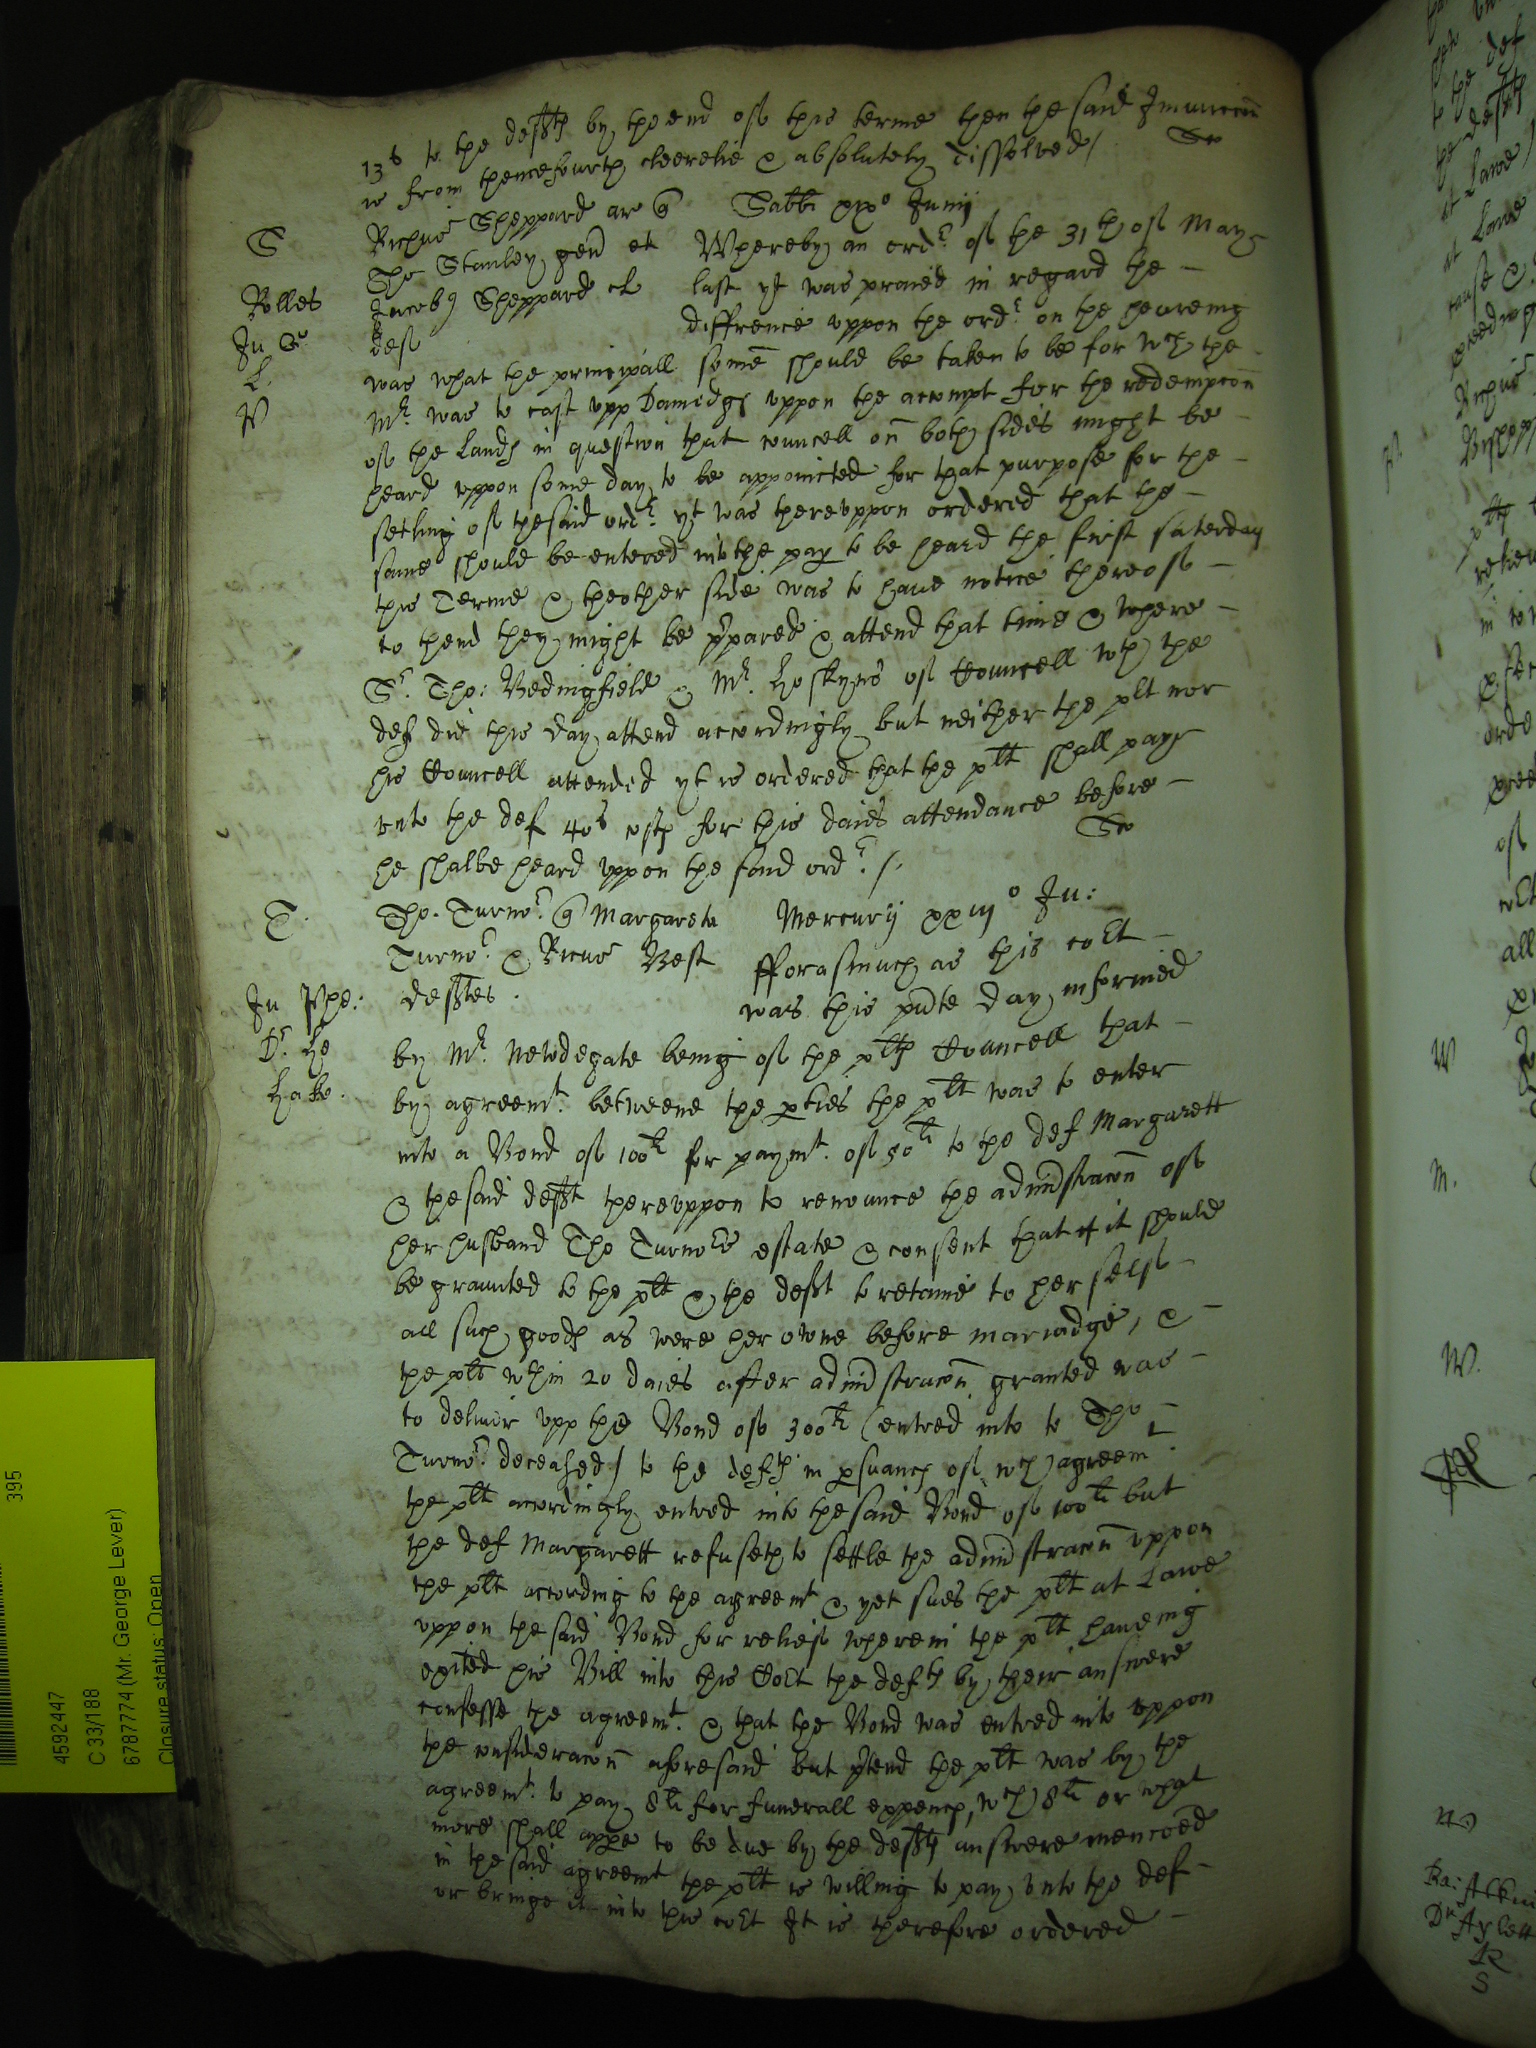 13s to the defts by the end of this terme then the said Injunccon
is from thenceforth cleerelie & absolutely dissolved / Sr
S
Richus Sheppard ar q Sabbi xix° Junij
Tho Stanley gen et Whereby an ordr of the 31th of May
Rolles
Jacobs Sheppard cl last yt was praied in regard the
In Sr
def diffrence uppon the ordr on the heareing
L.
was what the principall some should be taken to be for wch the
P
Mr was to cast upp Damedgs uppon the accompt for the redempcon
of the Lands in question that councell on both sides might be
heard uppon some day to be appointed for that purpose for the
setling of the said ordr yt was thereuppon ordered that the
same should be entered into the paper to be heard the first saterday
this Terme & the other side was to have notice thereof
to thend they might be prpared & attend that time & where
Sr. Tho: Bedingfield & Mr. Hoskyns of Councell wth the
def did this day attend accordingly but neither the plt nor
his Councell attended yt is ordered that the plt shall paye
unto the def 40s costs for this daies attendance before
he shalbe heard uppon the said ordr /. Sr
T.
Tho. Turnor q Margareta Mercurij xxiij° Ju:
Turnor & Ricus Best fforasmuch as this coLt
In Phe:
deftes. was this pnte day informed
Dr. He
by Mr. Newdegate being of the plts Councell that
Lake.
by agreemt. betweene the pties the plt was to enter
into a Bond of 100li for paymt. of 50li to the def Margarett
& the said deft thereuppon to renounce the adminstracon of
her husband Tho Turnors estate & consent that it should
be graunted to the plt & the deft to retaine to her self
all such goods as were her owne before mariadge, &
the plt wthin 20 daies after adminstracon granted was
to deliver upp the Bond of 300li (entred into to Tho
Turnor deceased) to the defts in psuance of wch agreemt
the plt accordingly entred into the said Bond of 100li but
the def Margarett refuseth to settle the adminstracon uppon
the plt according to the agreemt & yet sues the plt at Lawe
uppon the said Bond for relief wherein the plt haveing
exited his Bill into this CoLt the defts by their answere
confesse the agreemt. & that the Bond was entred into uppon
the consideracon aforesaid but ptend the plt was by the
agreemt. to pay 8li for funerall expences, wch 8li or what
more shall appe to be due by the defts answere mencoed
in the said agreemt the plt is willing to pay unto the def
or bringe it into this coLt It is therefore ordered
395
4592447
C 33/188
6787774 (Mr. George Lever)
Closure status: Open